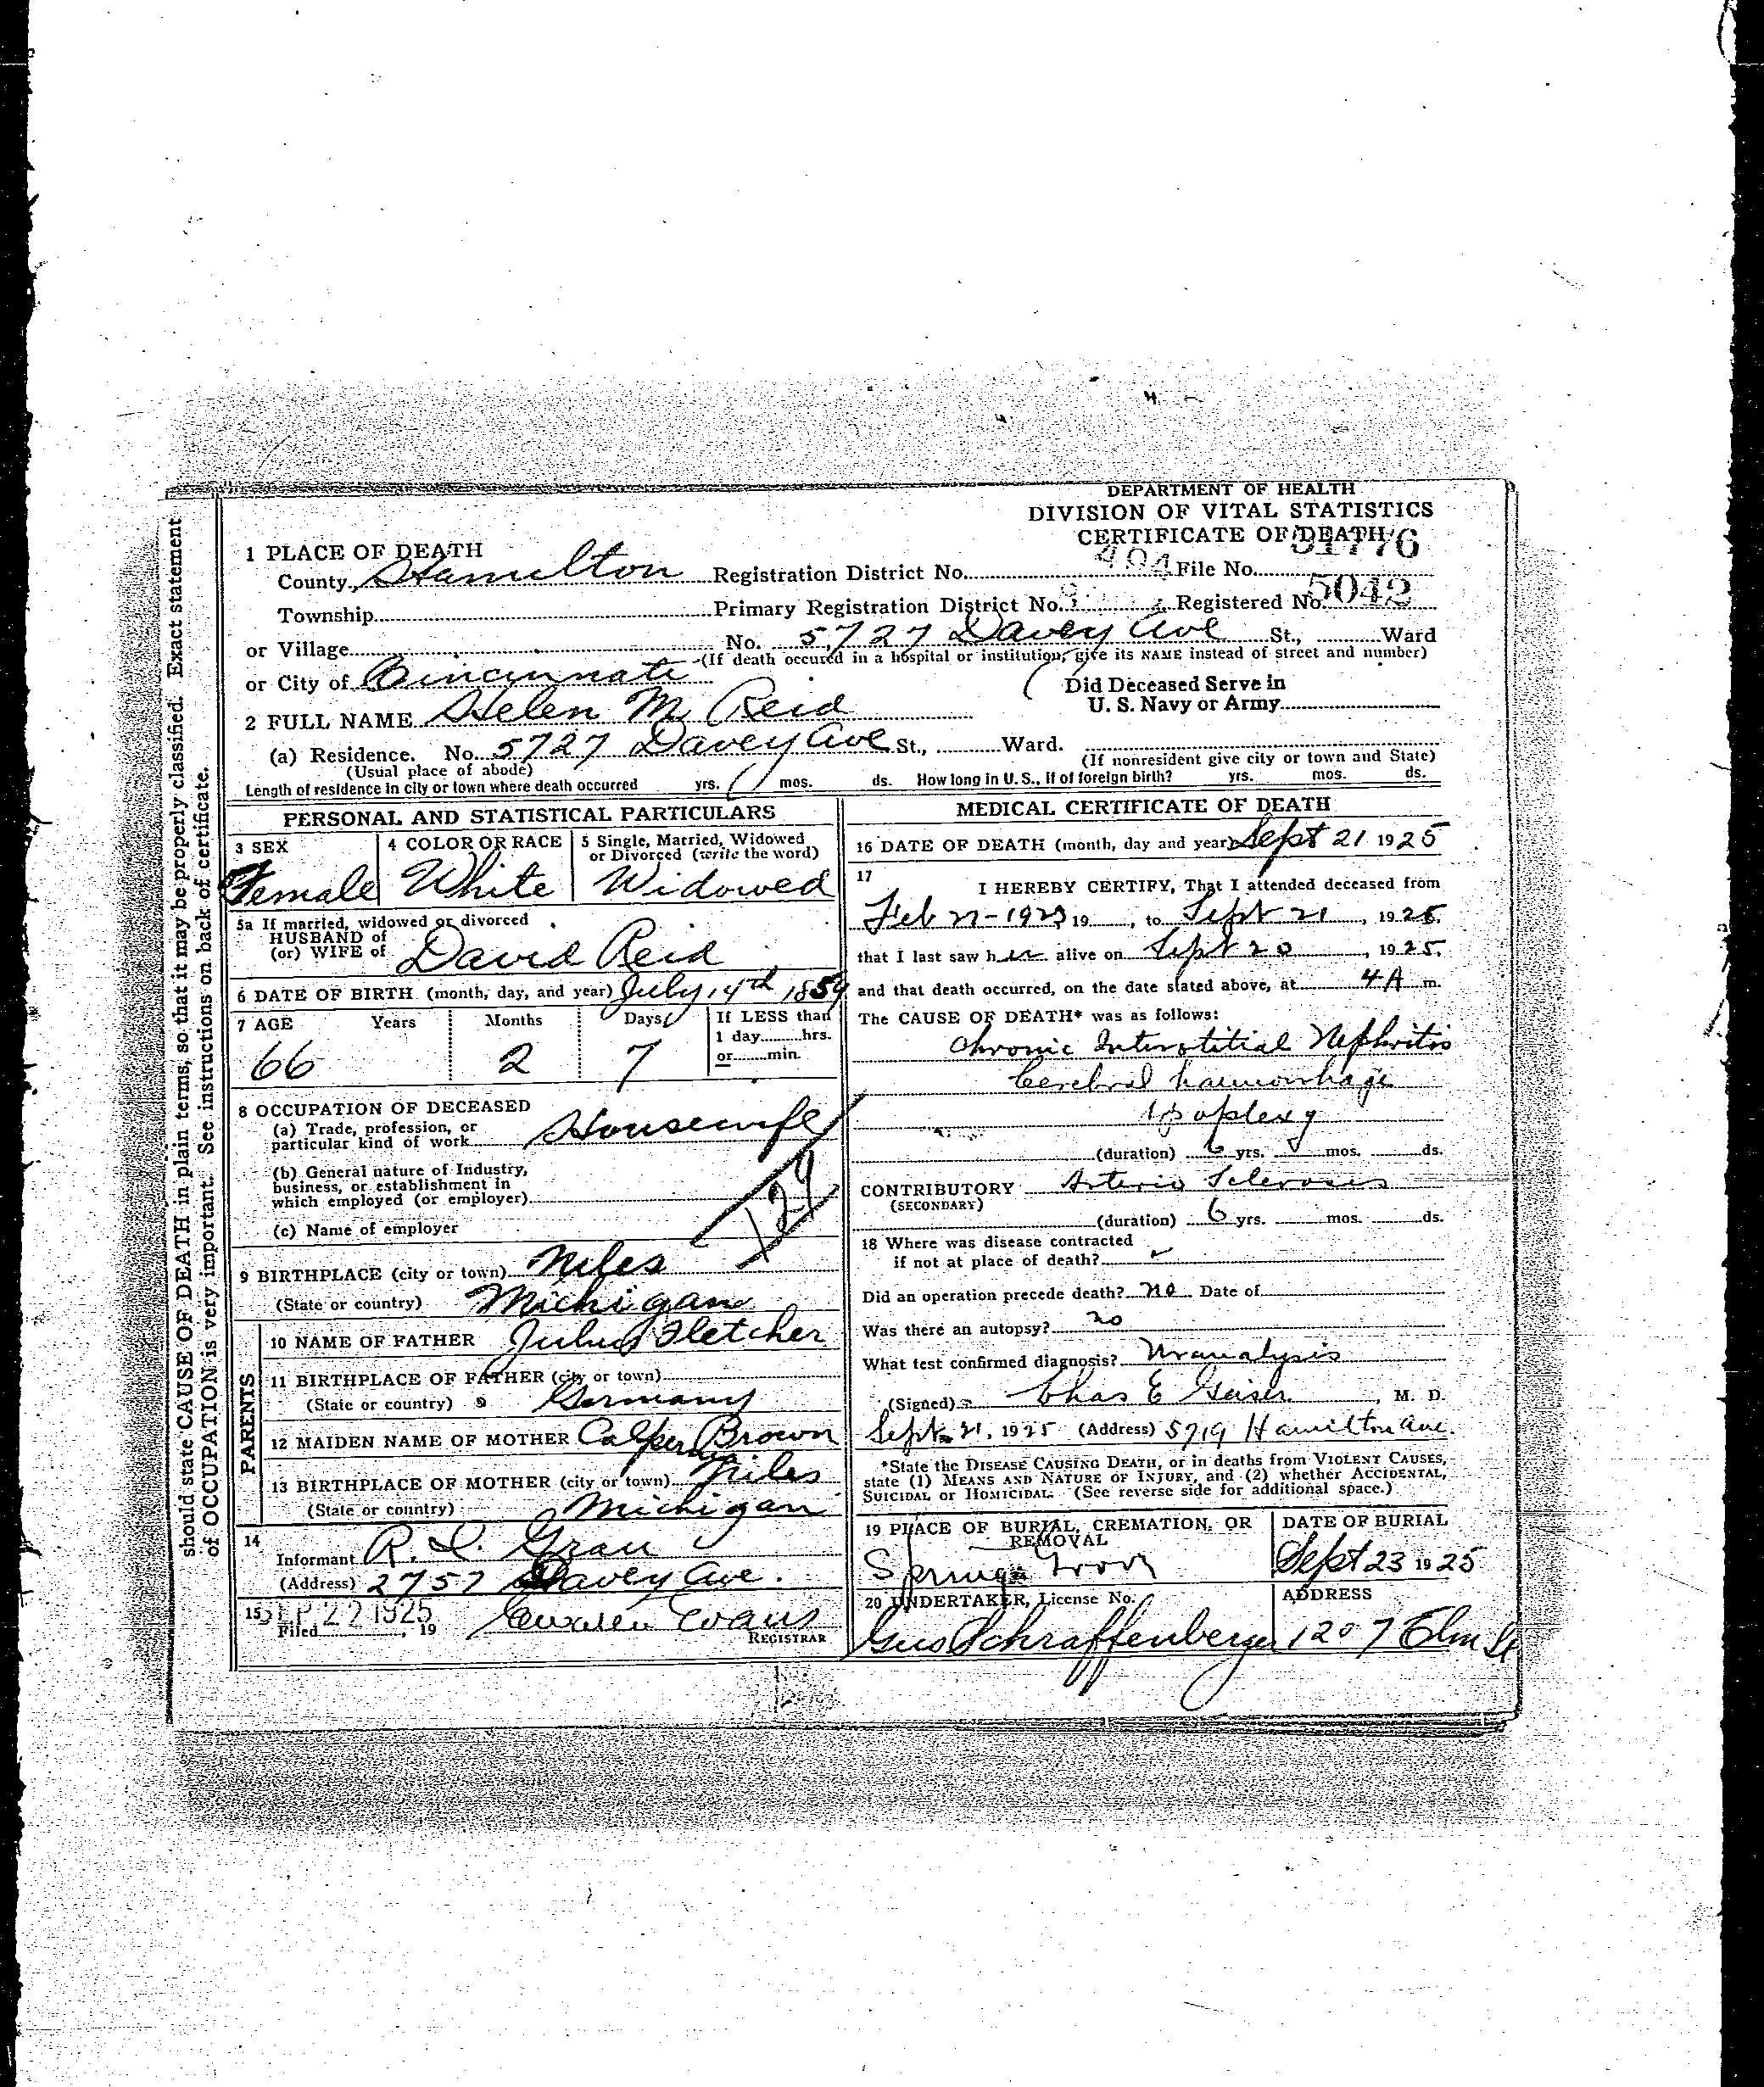 should state CAUSE OF DEATH in plain terms, so that it may be properly classified. Exact statement
of OCCUPATION is very important. See instructions on back of certificate.
DEPARTMENT OF HEALTH
DIVISION OF VITAL STATISTICS
CERTIFICATE OF DEATH
1 PLACE OF DEATH
County Hamilton Registration District No. 494 File No.
Township Primary Registration District No. Registered No. 5042
or Village No. 5727 Davey Ave St., Ward
(If death occured in a hospital or institution, give its NAME instead of street and number)
or City of Cincinnati
Did Deceased Serve in
U. S. Navy or Army
2 FULL NAME Helen M. Reid
(a) Residence. No. 5727 Davey Ave St., Ward.
(Usual place of abode) (If nonresident give city or town and State)
Length of residence in city or town where death occurred yrs. mos. ds. How long in U. S., if of foreign birth? yrs. mos. ds.
PERSONAL AND STATISTICAL PARTICULARS
3 SEX 4 COLOR OR RACE 5 Single, Married, Widowed
or Divorced (write the word)
Female White Widowed
5a If married, widowed or divorced
HUSBAND of
(or) WIFE of David Reid
6 DATE OF BIRTH (month, day, and year) July 14th 1859
7 AGE Years Months Days If LESS than
1 day hrs.
or min.
66 2 7
8 OCCUPATION OF DECEASED
(a) Trade, profession, or
particular kind of work Housewife
(b) General nature of Industry,
business, or establishment in
which employed (or employer)
129
(c) Name of employer
9 BIRTHPLACE (city or town) Niles
(State or country) Michigan
PARENTS
10 NAME OF FATHER Julius Fletcher
11 BIRTHPLACE OF FATHER (city or town)
(State or country) Germany
12 MAIDEN NAME OF MOTHER Brown
13 BIRTHPLACE OF MOTHER (city or town) Niles
(State or country) Michigan
14
Informant R. D. Grau
(Address) 2757 Davey Ave.
15 SEP 22 1925
Filed , 19 Evans
REGISTRAR
MEDICAL CERTIFICATE OF DEATH
16 DATE OF DEATH (month, day and year) Sept 21 1925
17
I HEREBY CERTIFY, That I attended deceased from
Feb 19 , to Sept 21 , 1925.
that I last saw her alive on Sept 20 , 1925.
and that death occurred, on the date stated above, at 4 A m.
The CAUSE OF DEATH* was as follows:
Chronic Interstitial Nephritis
Cerebral haemorrhage
Apoplexy
(duration) 6 yrs. mos. ds.
CONTRIBUTORY Arterio Sclerosis
(SECONDARY)
(duration) 6 yrs. mos. ds.
18 Where was disease contracted
if not at place of death?
Did an operation precede death? no Date of
Was there an autopsy? no
What test confirmed diagnosis? Uranalysis
(Signed) Chas E Geiser , M. D.
Sept 21, 1925 (Address) 5719 Hamilton Ave.
*State the DISEASE CAUSING DEATH, or in deaths from VIOLENT CAUSES,
state (1) MEANS AND NATURE OF INJURY, and (2) whether ACCIDENTAL,
SUICIDAL or HOMICIDAL. (See reverse side for additional space.)
19 PLACE OF BURIAL, CREMATION, OR
REMOVAL
DATE OF BURIAL
Spring Grove Sept 23 1925
20 UNDERTAKER, License No. ADDRESS
Gus Schraffenberger 1207 Elm St